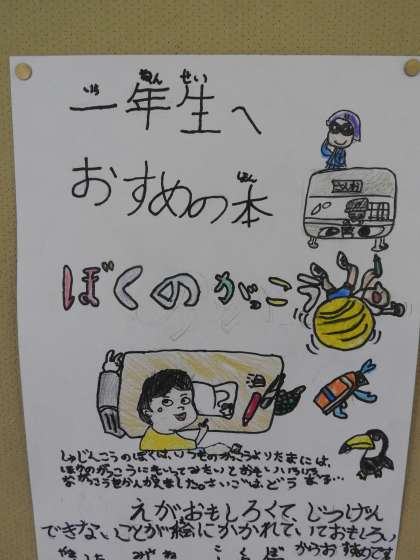 一年生へ
おすめの本
ぼくのがっこ
しゅじんこうのぼくは、いつものがっこうよりたまには、
ぼくのがっこうにもいってみたいとおもい、いろいろ
ながっこうをかんがえました。さいごは、どうなる…
えがおもしろくて、じつげん
できないことが絵にかかれていておもしろい
からおすすめです